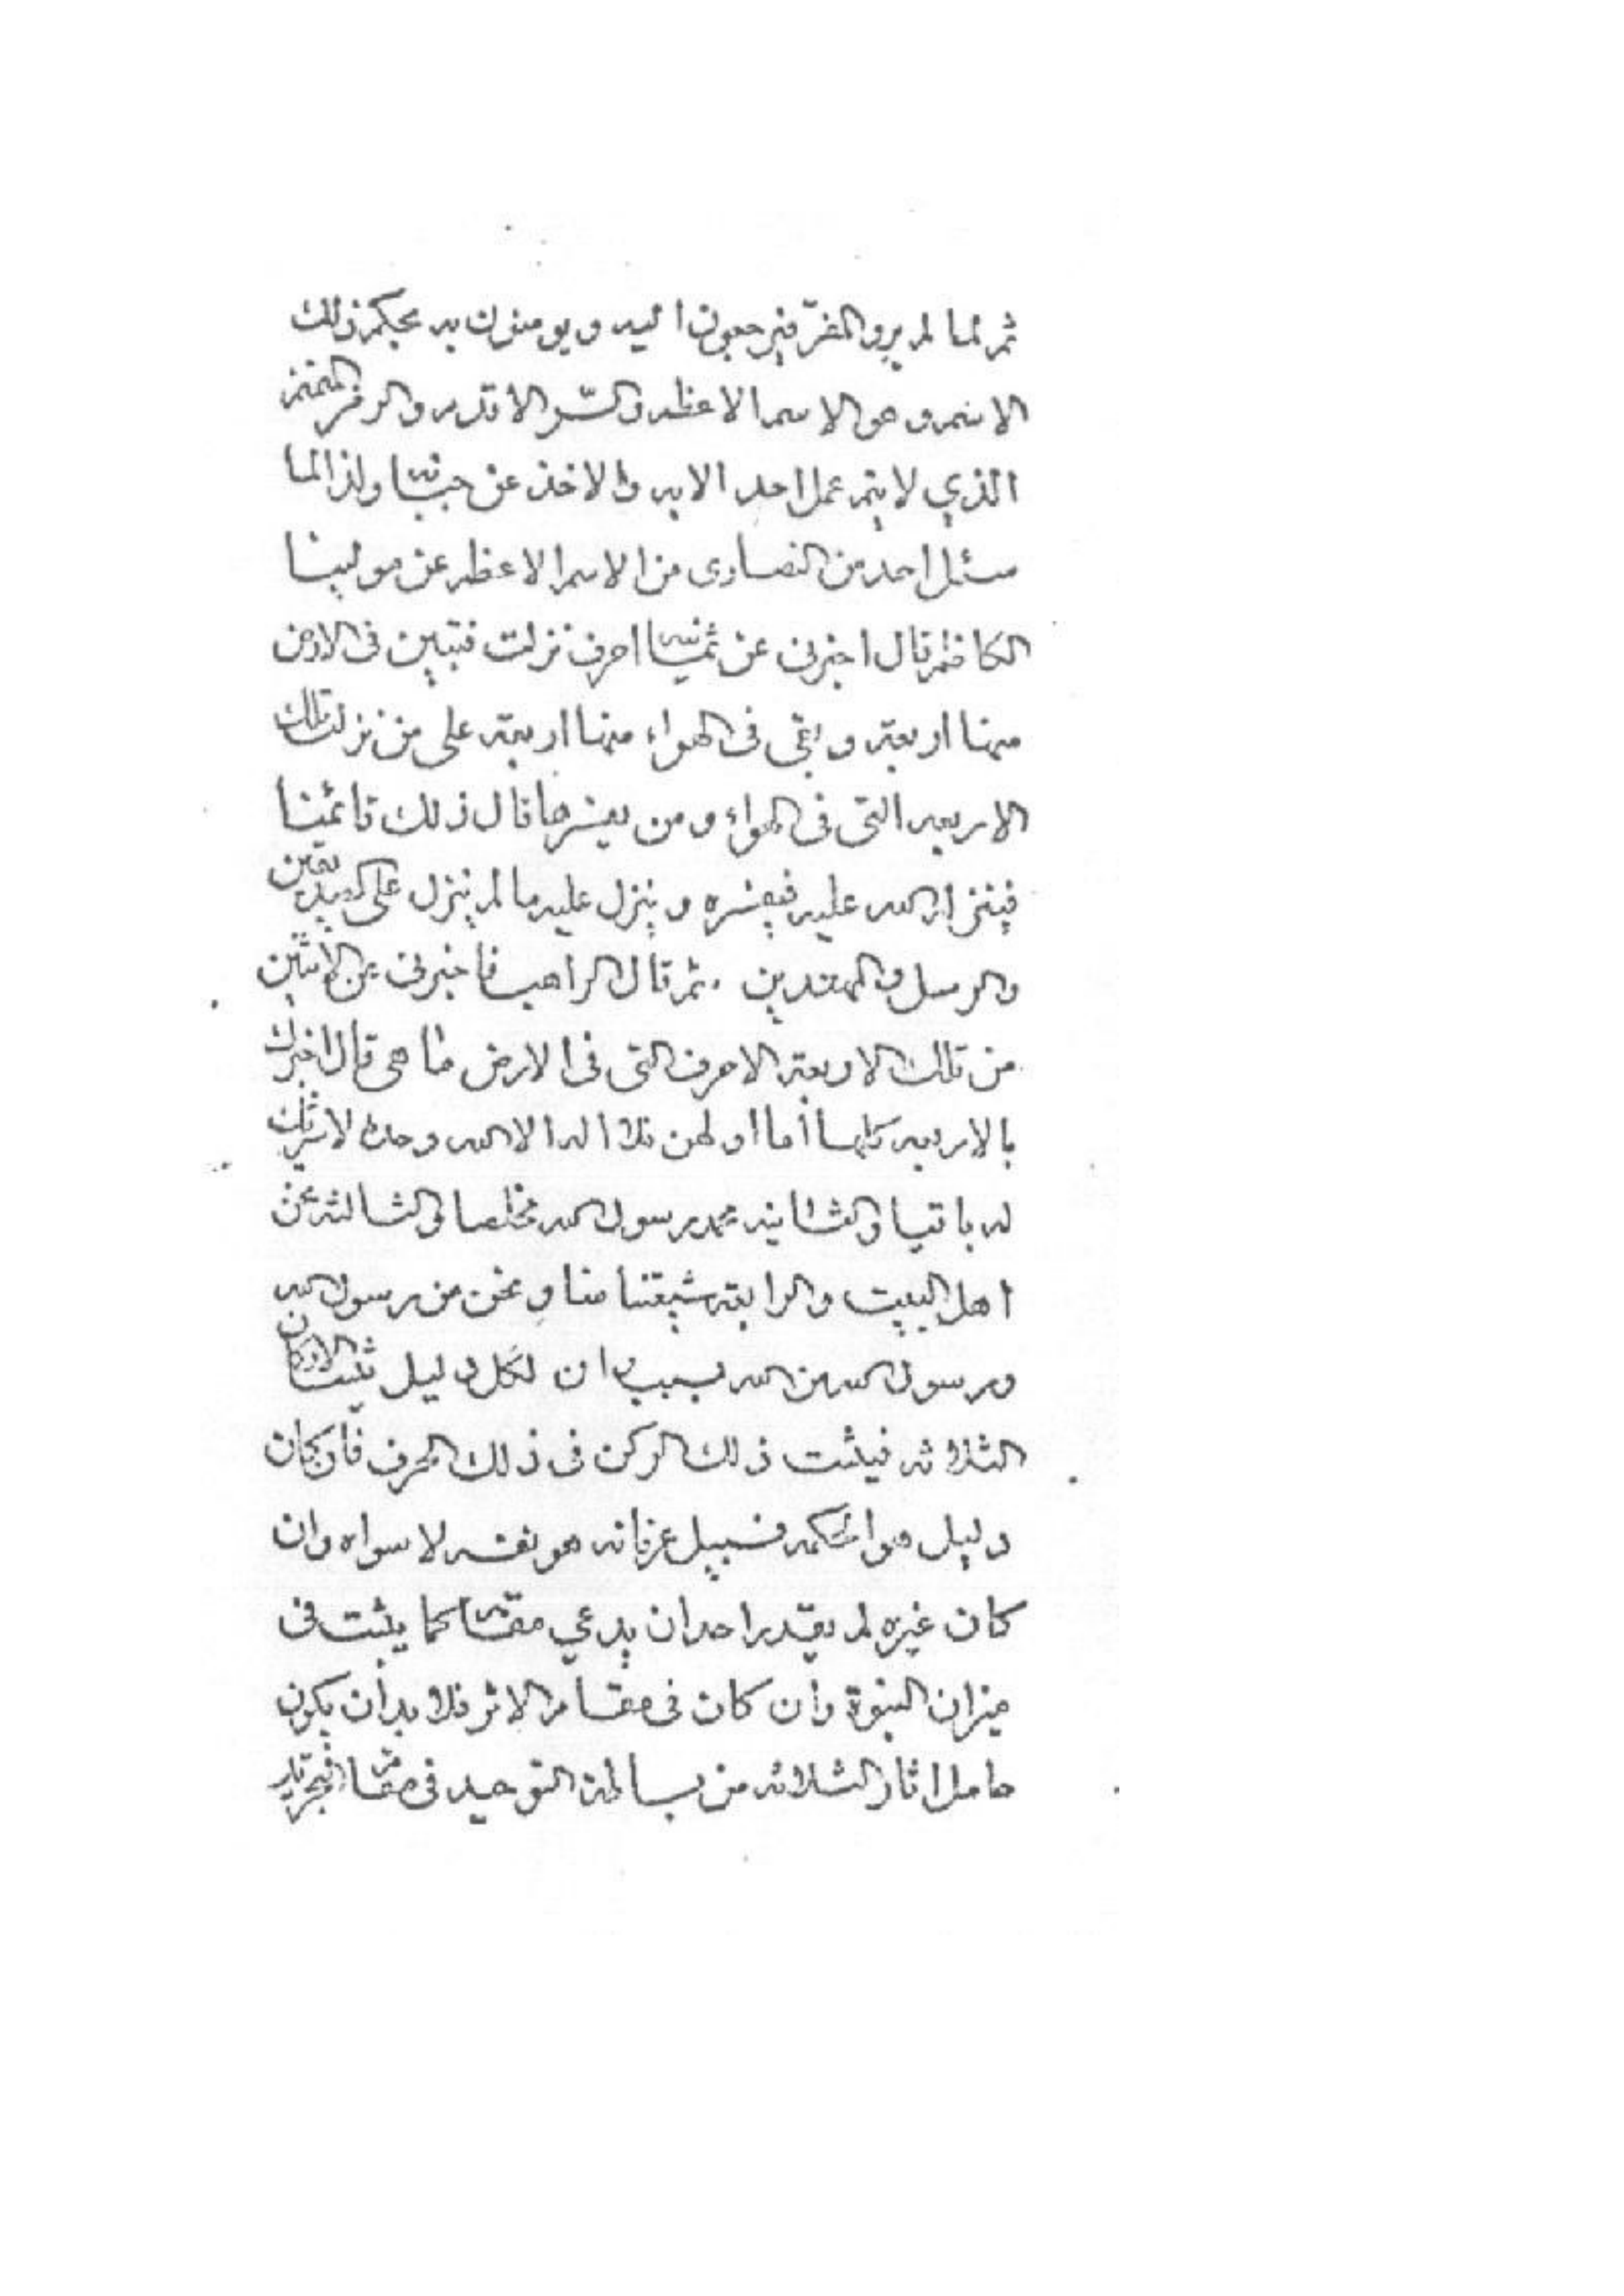 ثم لما لم يرو المفرّ فيرجعون اليه و يومنون به بحكم ذلك
الاسم و هو الاسم الاعظم و السّر الاقدم و الرمز المنمنم
الذي لا يتم عمل احد الا به و الاخذ عن جنابه و لذا لما
سئل احد من النصارى من الاسم الاعظم عن مولينا
الكاظم قال اخبرنى عن ثمنيه احرف نزلت فتبين فى الارض
منها اربعة و بقى فى الهواء منها اربعة على من نزلت تلك
الاربعه التى فى الهواء و من يفسرها قال ذلك قائمنا
فينزله الله عليه فيفسره و ينزل عليه ما لم ينزل على الصديقين
و الرسل و المهتدين ثم قال الراهب فاخبرنى عن الاثنين
من تلك الاربعة الاحرف التى فى الارض ما هى قال اخبرك
بالاربعه كلها أما اولهن فلا اله الا الله وحده لا شريك
له باقيا و الثانيه محمد رسول الله مخلصا و الثالثه نحن
اهل البيت و الرابعه شيعتنا منا و نحن من رسول الله
و رسول الله من الله بسبب و ان لكل دليل يثبت الاركان
الثلاثه فيثبت ذلك الركن فى ذلك الحرف فان كان
دليل هو الحكمه فسبيل عرفانه هو نفسه لا سواه و ان
كان غيره لم يقدر احد ان يدعي مقامه كما يثبت فى
ميزان النبوة و ان كان فى مقام الاثر فلا بد أن يكون
حامل اثار الثلاثه من بسالمة التوحيد فى مقام